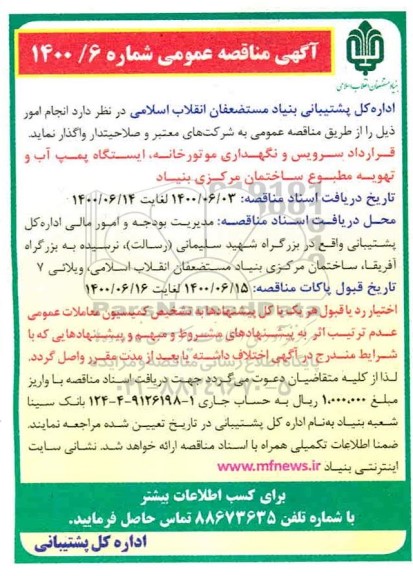 آگهی مناقصه عمومی شماره ۶/ ۱۴۰۰
بنیاد مستضعفان انقلاب اسلامی
اداره‌کل پشتیبانی بنیاد مستضعفان انقلاب اسلامی در نظر دارد انجام امور
ذیل را از طریق مناقصه عمومی به شرکت‌های معتبر و صلاحیتدار واگذار نماید.
قرارداد سرویس و نگهداری موتورخانه، ایستگاه پمپ آب و
تهویه مطبوع ساختمان مرکزی بنیاد
تاریخ دریافت اسناد مناقصه: ۱۴۰۰/۰۶/۰۳ لغایت ۱۴۰۰/۰۶/۱۴
محل دریافت اسناد مناقصه: مدیریت بودجه و امور مالی اداره‌کل
پشتیبانی واقع در بزرگراه شهید سلیمانی (رسالت)، نرسیده به بزرگراه
آفریقا، ساختمان مرکزی بنیاد مستضعفان انقلاب اسلامی، ویلائی ۷
تاریخ قبول پاکات مناقصه: ۱۴۰۰/۰۶/۱۵ لغایت ۱۴۰۰/۰۶/۱۶
اختیار رد یا قبول هر یک یا کل پیشنهادها به تشخیص کمیسیون معاملات عمومی
عدم ترتیب اثر به پیشنهادهای مشروط و مبهم و پیشنهادهایی که با
شرایط مندرج در آگهی اختلاف داشته یا بعد از مدت مقرر واصل گردد.
لذا از کلیه متقاضیان دعوت می‌گردد جهت دریافت اسناد مناقصه با واریز
مبلغ ۱.۰۰۰.۰۰۰ ریال به حساب جاری ۱-۹۱۲۶۱۹۸-۴-۱۲۴ بانک سینا
شعبه بنیاد به‌نام اداره کل پشتیبانی در تاریخ تعیین شده مراجعه نمایند.
ضمنا اطلاعات تکمیلی همراه با اسناد مناقصه ارائه خواهد شد. نشانی سایت
اینترنتی بنیاد www.mfnews.ir
برای کسب اطلاعات بیشتر
با شماره تلفن ۸۸۶۷۳۶۳۵ تماس حاصل فرمایید.
اداره کل پشتیبانی